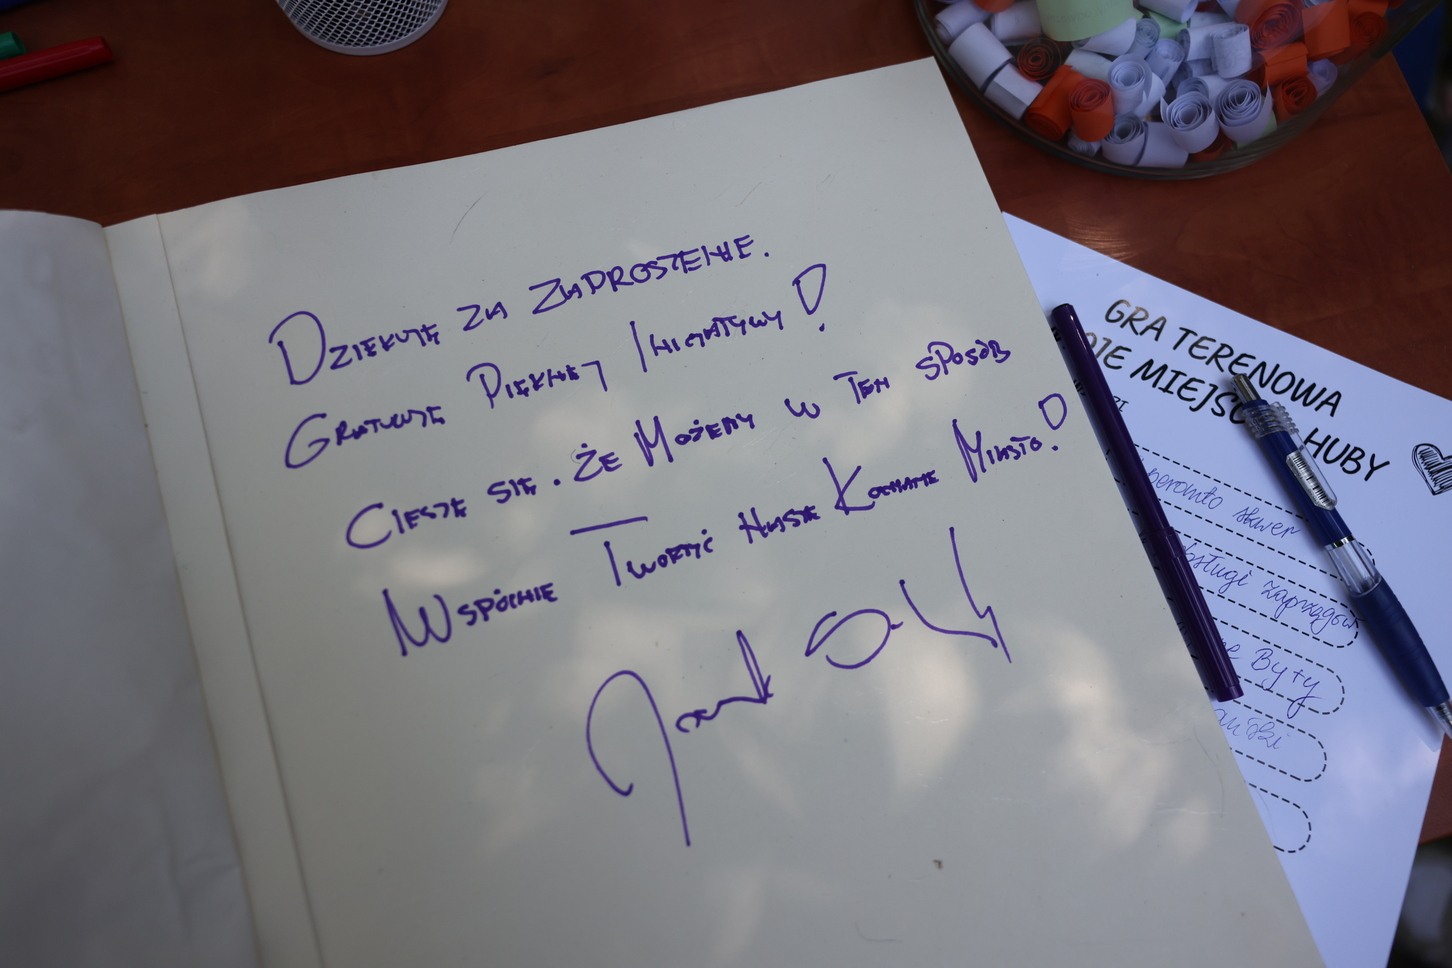 DZIĘKUJĘ ZA ZAPROSZENIE.
GRATULUJĘ PIĘKNEJ INICJATYWY!
CIESZĘ SIĘ. ŻE MOŻEMY W TEN SPOSÓB
WSPÓLNIE TWORZYĆ NASZE KOCHANE MIASTO!
Jacek
GRA TERENOWA
OJE MIEJSC HUBY
peranto skwer
bsługi zaprzęgów
Byty